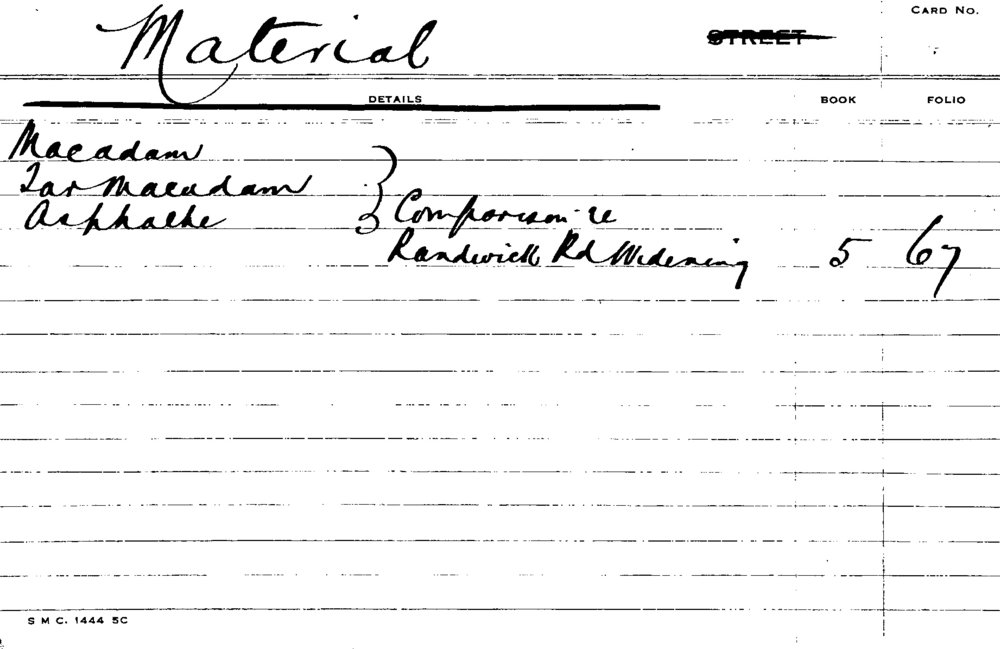 Material STREET CARD No.
DETAILS BOOK FOLIO
Macadam
Tar Macadam
Asphalte } Comparison re
Randwick Rd Widening 5 67
S M C. 1444 5C